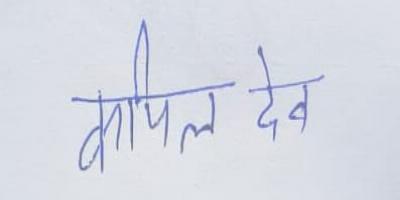 कपिल देव